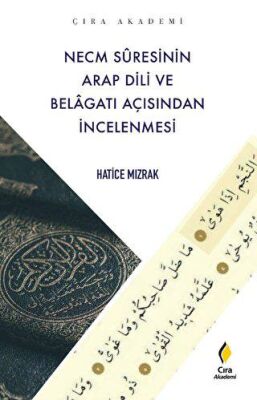 ÇIRA AKADEMİ
NECM SÛRESİNİN
ARAP DİLİ VE
BELÂGATI AÇISINDAN
İNCELENMESİ
HATİCE MIZRAK
وَالنَّجْمِ اِذَا هَوٰى
مَا ضَلَّ صَاحِبُكُمْ وَمَا غَوٰى
يُوحٰى
عَلَّمَهُ شَدِيدُ الْقُوٰى
ذُو مِرَّةٍ
وَهُوَ
القرآن الكريم
Çıra
Akademi